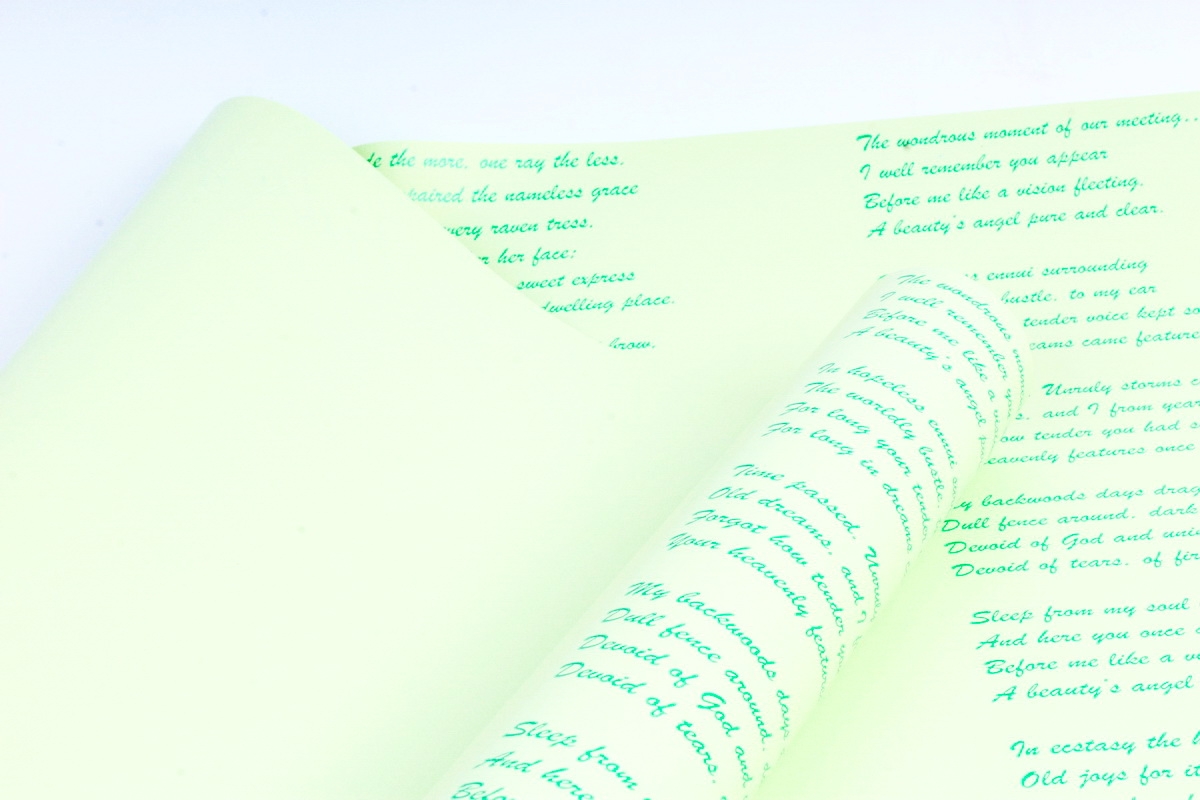 the more, one ray the less.
the nameless grace
raven tress.
her face;
sweet express
dwelling place.
brow.
The wondrous moment of our meeting...
I well remember you appear
Before me like a vision fleeting.
A beauty's angel pure and clear.
ennui surrounding
bustle, to my ear
tender voice kept
came
Unruly storms
and I from
tender you had
features once
backwoods days
Dull fence around, dark
Devoid of God and
Devoid of tears, of
Sleep from my soul
And here you once
Before me like a
A beauty's angel
In ecstasy the
Old joys for
The wondrous
I well remember
Before me like a
A beauty's angel
In hopeless ennui
The worldly bustle,
For long your tender
For long in dreams
Time passed. Unruly
Old dreams, and I
Forgot how tender
Your heavenly
My backwoods days
Dull fence around,
Devoid of God and
Devoid of tears,
Sleep from
And here